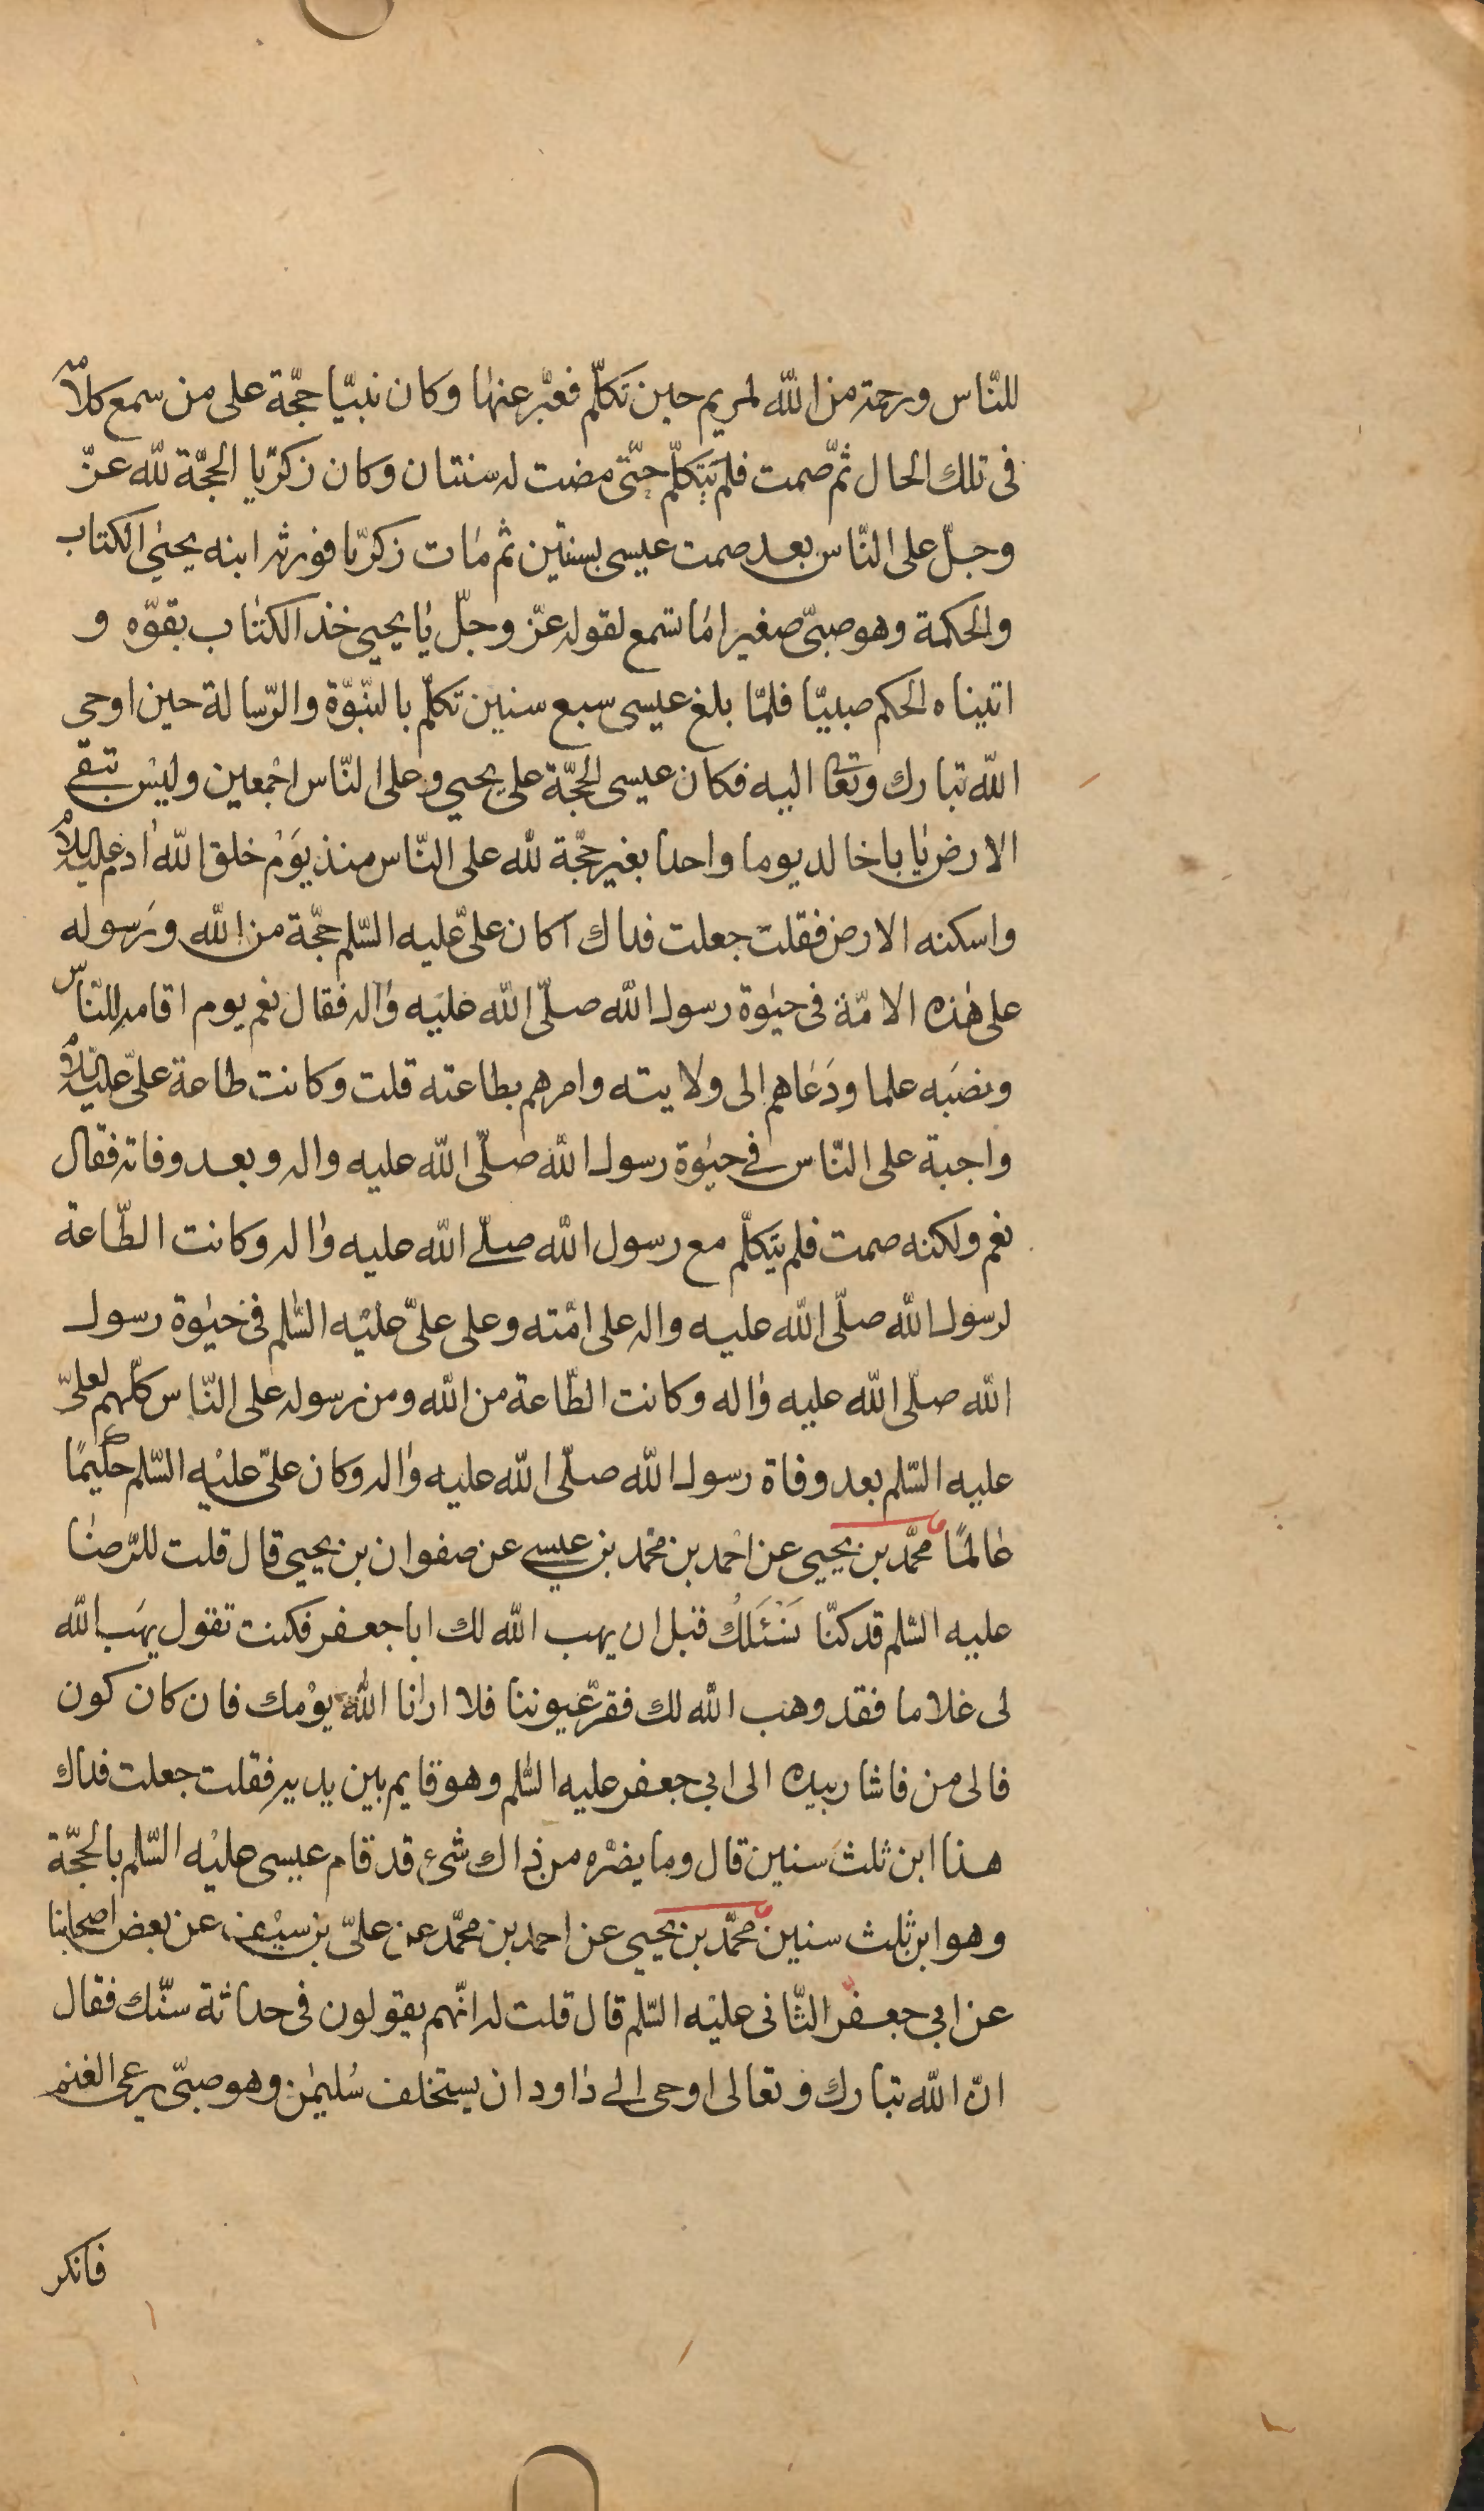 للنّاس ورحمة من اللّه لمريم حين تكلّم فعبّر عنها وكان نبيّا حجّة على من سمع كلامه
فى تلك الحال ثمّ صمت فلم يتكلّم حتّى مضت له سنتان وكان زكريّا الحجّة للّه عزّ
وجلّ على النّاس بعد صمت عيسى بسنتين ثم مات زكريّا فورثه ابنه يحيى الكتاب
والحكمة وهو صبىّ صغير اما تسمع لقوله عزّ وجلّ يا يحيى خذ الكتاب بقوّه و
اتيناه الحكم صبيّا فلمّا بلغ عيسى سبع سنين تكلّم بالنّبوّة والرّسالة حين اوحى
اللّه تبارك وتعا اليه فكان عيسى الحجّة على يحيى وعلى النّاس اجمعين وليس تبقى
الارض يا باخالد يوما واحدا بغير حجّة للّه على النّاس منذ يوم خلق اللّه ادم عليه السلام
واسكنه الارض فقلت جعلت فداك اكان علىّ عليه السّلم حجّة من اللّه ورسوله
على هذه الامّة فى حيوة رسول اللّه صلّى اللّه عليه واله فقال نعم يوم اقامه للنّاس
ونصبه علما ودعاهم الى ولايته وامرهم بطاعته قلت وكانت طاعة علىّ عليه السلام
واجبة على النّاس فى حيوة رسول اللّه صلّى اللّه عليه واله وبعد وفاته فقال
نعم ولكنه صمت فلم يتكلّم مع رسول اللّه صلّى اللّه عليه واله وكانت الطّاعة
لرسول اللّه صلّى اللّه عليه واله على امّته وعلى علىّ عليه السّلم فى حيوة رسول
اللّه صلّى اللّه عليه واله وكانت الطّاعة من اللّه ومن رسوله على النّاس كلّهم لعلىّ
عليه السّلم بعد وفاة رسول اللّه صلّى اللّه عليه واله وكان علىّ عليه السّلم حكيمًا
عالمًا محمّد بن يحيى عن احمد بن محمّد بن عيسى عن صفوان بن يحيى قال قلت للرّضا
عليه السّلم قد كنّا نسئلك قبل ان يهب اللّه لك ابا جعفر فكنت تقول يهب اللّه
لى غلاما فقد وهب اللّه لك فقرّ عيوننا فلا ارانا اللّه يومك فان كان كون
فالى من فاشار بيده الى ابى جعفر عليه السّلم وهو قايم بين يديه فقلت جعلت فداك
هذا ابن ثلث سنين قال وما يضرّه من ذاك شئ قد قام عيسى عليه السّلم بالحجّة
وهو ابن ثلث سنين محمّد بن يحيى عن احمد بن محمّد عن علىّ بن سيف عن بعض اصحابنا
عن ابى جعفر الثّانى عليه السّلم قال قلت له انّهم يقولون فى حداثة سنّك فقال
انّ اللّه تبارك وتعالى اوحى الى داود ان يستخلف سليمن وهو صبىّ يرعى الغنم
فانكر